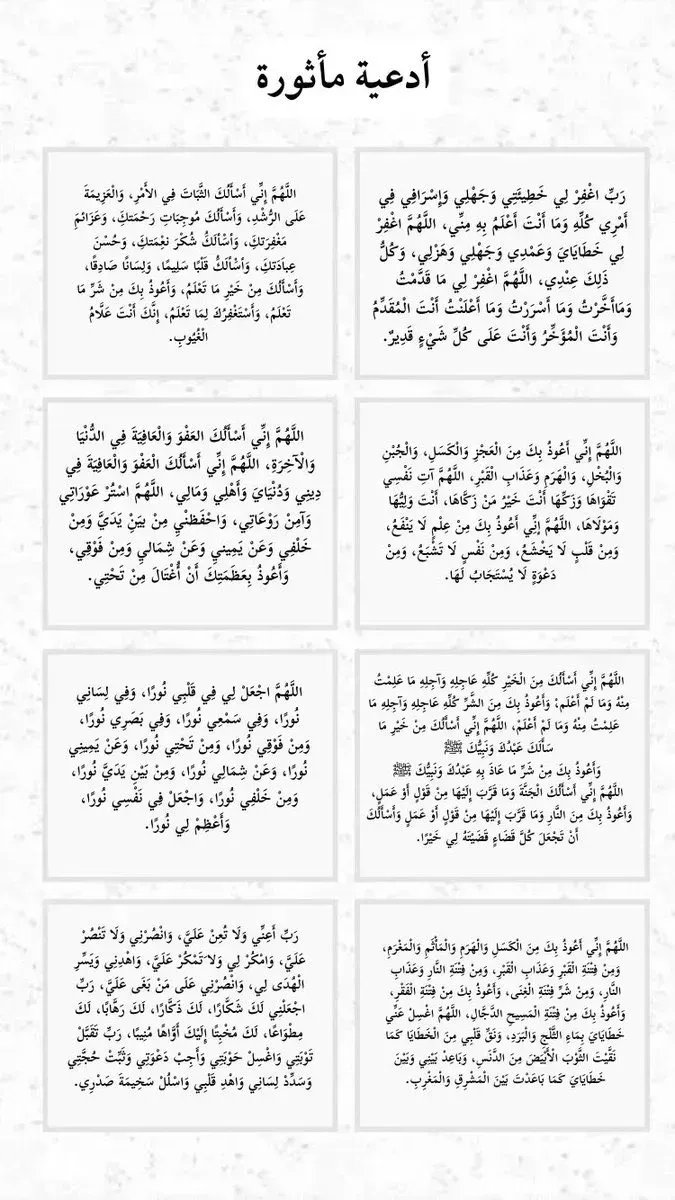 أدعية مأثورة
رَبِّ اغْفِرْ لِي خَطِيئَتِي وَجَهْلِي وَإِسْرَافِي فِي
أَمْرِي كُلِّهِ وَمَا أَنْتَ أَعْلَمُ بِهِ مِنِّي، اللَّهُمَّ اغْفِرْ
لِي خَطَايَايَ وَعَمْدِي وَجَهْلِي وَهَزْلِي، وَكُلُّ
ذَلِكَ عِنْدِي، اللَّهُمَّ اغْفِرْ لِي مَا قَدَّمْتُ
وَمَاأَخَّرْتُ وَمَا أَسْرَرْتُ وَمَا أَعْلَنْتُ أَنْتَ الْمُقَدِّمُ
وَأَنْتَ الْمُؤَخِّرُ وَأَنْتَ عَلَى كُلِّ شَيْءٍ قَدِيرٌ.
اللَّهُمَّ إِنِّي أَسْأَلُكَ الثَّبَاتَ فِي الأَمْرِ، وَالْعَزِيمَةَ
عَلَى الرُّشْدِ، وَأَسْأَلُكَ مُوجِبَاتِ رَحْمَتكِ، وَعَزَائمَ
مَغْفِرَتكَ، وَأسْألَكُ شُكْرَ نعِْمَتكِ، وَحُسْنَ
عِباَدَتكِ، وَأسْألَكُ قَلْبًا سَلِيمًا، وَلِسَانًا صَادِقًا،
وَأَسْأَلُكَ مِنْ خَيْرِ مَا تَعْلَمُ، وَأَعُوذُ بِكَ مِنْ شَرِّ مَا
تَعْلَمُ، وَأَسْتَغْفِرُكَ لِمَا تَعْلَمُ، إِنَّكَ أَنْتَ عَلَّامُ
الْغُيُوبِ.
اللَّهُمَّ إِنِّي أَعُوذُ بِكَ مِنَ الْعَجْزِ وَالْكَسَلِ، وَالْجُبْنِ
وَالْبُخْلِ، وَالْهَرَمِ وَعَذَابِ الْقَبْرِ، اللَّهُمَّ آتِ نَفْسِي
تَقْوَاهَا وَزَكِّهَا أَنْتَ خَيْرُ مَنْ زَكَّاهَا، أَنْتَ وَلِيُّهَا
وَمَوْلَاهَا، اللَّهُمَّ إِنِّي أَعُوذُ بِكَ مِنْ عِلْمٍ لَا يَنْفَعُ،
وَمِنْ قَلْبٍ لَا يَخْشَعُ، وَمِنْ نَفْسٍ لَا تَشْبَعُ، وَمِنْ
دَعْوَةٍ لَا يُسْتَجَابُ لَهَا.
اللَّهُمَّ إِنِّي أَسْأَلُكَ العَفْوَ وَالْعَافِيَةَ فِي الدُّنْيَا
وَالْآخِرَةِ، اللَّهُمَّ إِنِّي أَسْأَلُكَ الْعَفْوَ وَالْعَافِيَةَ فِي
دِينِي وَدُنْيَايَ وَأَهْلِي وَمَالِي، اللَّهُمَّ اسْتُرْ عَوْرَاتِي
وَآمِنْ رَوْعَاتِي، وَاحْفَظْنِي مِنْ بَيْنِ يَدَيَّ وَمِنْ
خَلْفِي وَعَنْ يَمِينيِ وَعَنْ شِمَاليِ وَمِنْ فَوْقِي،
وَأَعُوذُ بِعَظَمَتِكَ أَنْ أُغْتَالَ مِنْ تَحْتِي.
اللَّهُمَّ إِنِّي أَسْأَلُكَ مِنَ الْخَيْرِ كُلِّهِ عَاجِلِهِ وَآجِلِهِ مَا عَلِمْتُ
مِنْهُ وَمَا لَمْ أَعْلَمْ، وَأَعُوذُ بِكَ مِنَ الشَّرِّ كُلِّهِ عَاجِلِهِ وَآجِلِهِ مَا
عَلِمْتُ مِنْهُ وَمَا لَمْ أَعْلَمْ، اللَّهُمَّ إِنِّي أَسْأَلُكَ مِنْ خَيْرِ مَا
سَأَلَكَ عَبْدُكَ وَنَبِيُّكَ ﷺ
وَأَعُوذُ بِكَ مِنْ شَرِّ مَا عَاذَ بِهِ عَبْدُكَ وَنَبِيُّكَ ﷺ
اللَّهُمَّ إِنِّي أَسْأَلُكَ الْجَنَّةَ وَمَا قَرَّبَ إِلَيْهَا مِنْ قَوْلٍ أَوْ عَمَلٍ،
وَأَعُوذُ بِكَ مِنَ النَّارِ وَمَا قَرَّبَ إِلَيْهَا مِنْ قَوْلٍ أَوْ عَمَلٍ وَأَسْأَلُكَ
أَنْ تَجْعَلَ كُلَّ قَضَاءٍ قَضَيْتَهُ لِي خَيْرًا.
اللَّهُمَّ اجْعَلْ لِي فِي قَلْبِي نُورًا، وَفِي لِسَانِي
نُورًا، وَفِي سَمْعِي نُورًا، وَفِي بَصَرِي نُورًا،
وَمِنْ فَوْقِي نُورًا، وَمِنْ تَحْتِي نُورًا، وَعَنْ يَمِينِي
نُورًا، وَعَنْ شِمَالِي نُورًا، وَمِنْ بَيْنِ يَدَيَّ نُورًا،
وَمِنْ خَلْفِي نُورًا، وَاجْعَلْ فِي نَفْسِي نُورًا،
وَأَعْظِمْ لِي نُورًا.
اللَّهُمَّ إِنِّي أَعُوذُ بِكَ مِنَ الْكَسَلِ وَالْهَرَمِ وَالْمَأْثَمِ وَالْمَغْرَمِ،
وَمِنْ فِتْنَةِ الْقَبْرِ وَعَذَابِ الْقَبْرِ، وَمِنْ فِتْنَةِ النَّارِ وَعَذَابِ
النَّارِ، وَمِنْ شَرِّ فِتْنَةِ الْغِنَى، وَأَعُوذُ بِكَ مِنْ فِتْنَةِ الْفَقْرِ،
وَأَعُوذُ بِكَ مِنْ فِتْنَةِ الْمَسِيحِ الدَّجَّالِ، اللَّهُمَّ اغْسِلْ عَنِّي
خَطَايَايَ بِمَاءِ الثَّلْجِ وَالْبَرَدِ، وَنَقِّ قَلْبِي مِنَ الْخَطَايَا كَمَا
نَقَّيْتَ الثَّوْبَ الْأَبْيَضَ مِنَ الدَّنَسِ، وَبَاعِدْ بَيْنِي وَبَيْنَ
خَطَايَايَ كَمَا بَاعَدْتَ بَيْنَ الْمَشْرِقِ وَالْمَغْرِبِ.
رَبِّ أَعِنِّي وَلَا تُعِنْ عَلَيَّ، وَانْصُرْنِي وَلَا تَنْصُرْ
عَلَيَّ، وَامْكُرْ لِي وَلا َتَمْكُرْ عَلَيَّ، وَاهْدِنِي وَيَسِّرِ
الْهُدَى لِي، وَانْصُرْنِي عَلَى مَنْ بَغَى عَلَيَّ، رَبِّ
اجْعَلْنِي لَكَ شَكَّارًا، لَكَ ذَكَّارًا، لَكَ رَهَّابًا، لَكَ
مِطْوَاعًا، لَكَ مُخْبِتًا إِلَيْكَ أَوَّاهًا مُنِيبًا، رَبِّ تَقَبَّلْ
تَوْبَتِي وَاغْسِلْ حَوْبَتِي وَأَجِبْ دَعْوَتِي وَثَبِّتْ حُجَّتِي
وَسَدِّدْ لِسَانِي وَاهْدِ قَلْبِي وَاسْلُلْ سَخِيمَةَ صَدْرِي.